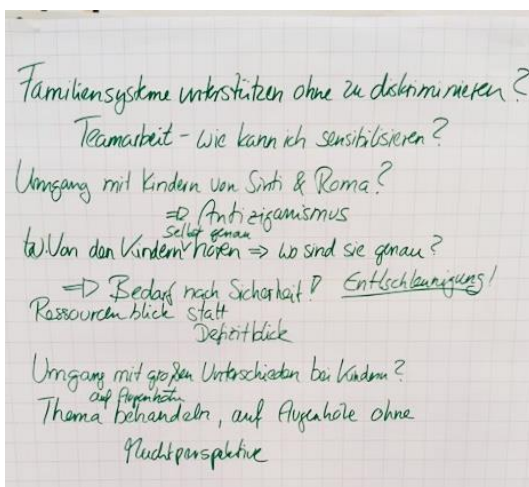 Familiensysteme unterstützen ohne zu diskriminieren?
Teamarbeit - wie kann ich sensibilisieren?
Umgang mit Kindern von Sinti & Roma?
=> Antiziganismus
selbst genau
Von den Kindern hören => wo sind sie genau?
=> Bedarf nach Sicherheit! Entschleunigung!
Ressourcenblick statt
Defizitblick
Umgang mit großen Unterschieden bei Kindern?
auf Augenhöhe
Thema behandeln, auf Augenhöhe ohne
Machtperspektive